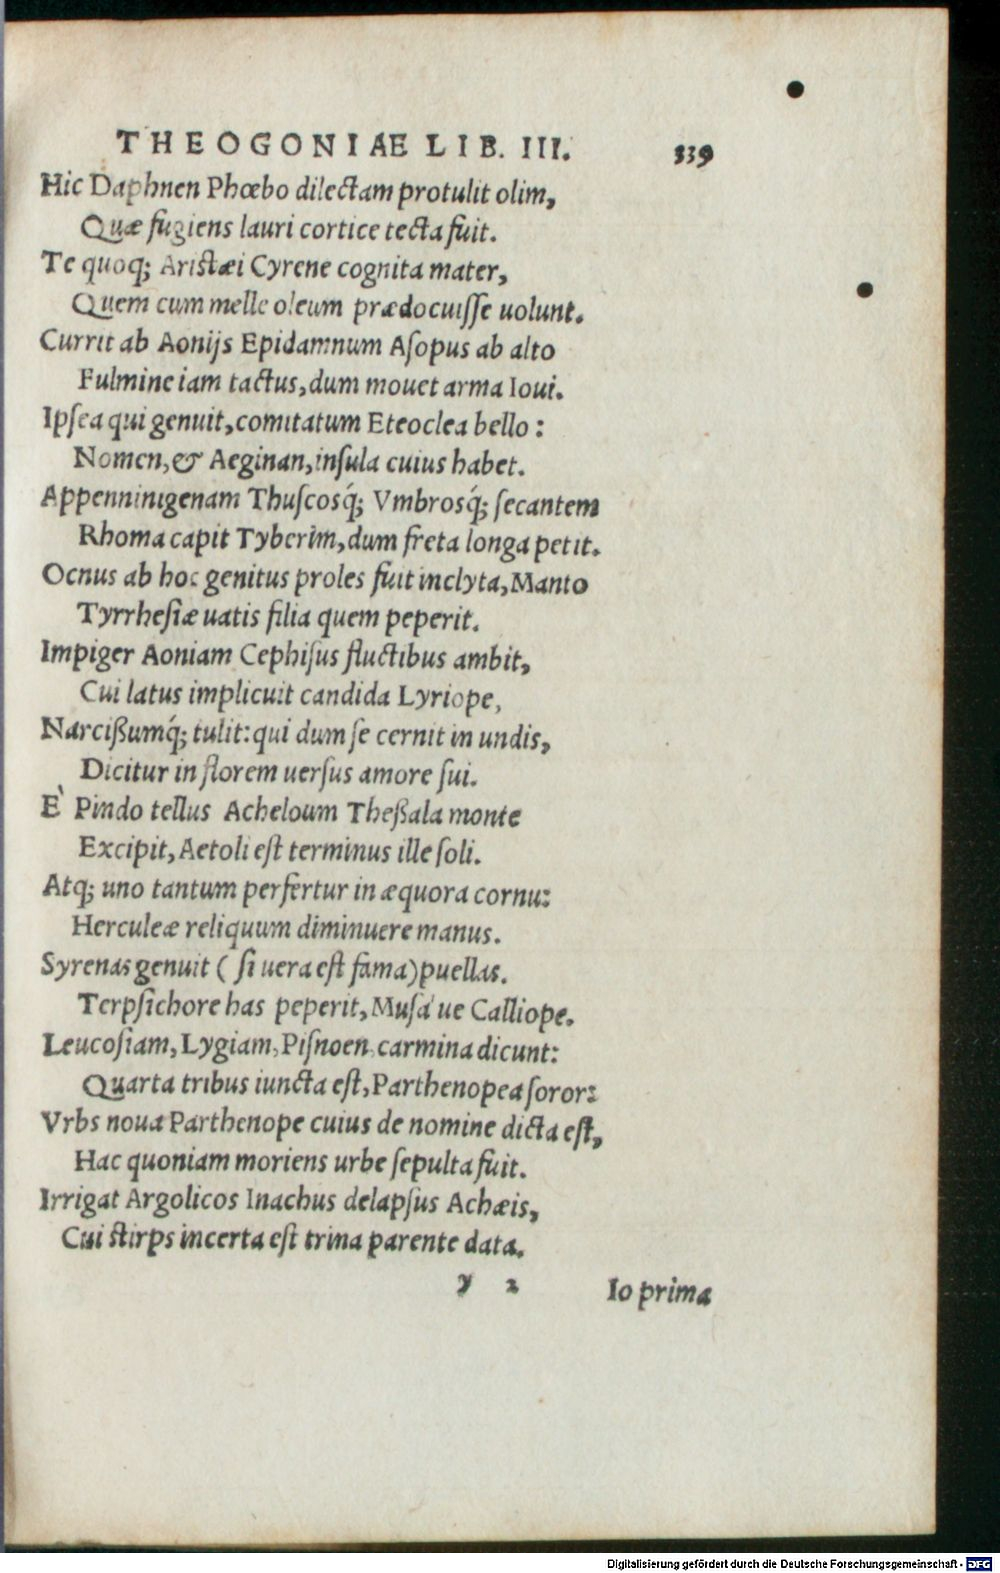 THEOGONIAE LIB. III. 339
Hic Daphnen Phœbo dilectam protulit olim,
Quæ fugiens lauri cortice tecta fuit.
Te quoq; Aristæi Cyrene cognita mater,
Quem cum melle oleum prædocuiſſe uolunt.
Currit ab Aonijs Epidamnum Aſopus ab alto
Fulmine iam tactus, dum mouet arma Ioui.
Ipſea qui genuit, comitatum Eteoclea bello:
Nomen, & Aeginan, inſula cuius habet.
Appenninigenam Thuſcosq́; Vmbrosq́; ſecantem
Rhoma capit Tyberim, dum freta longa petit.
Ocnus ab hoc genitus proles fuit inclyta, Manto
Tyrrheſiæ uatis filia quem peperit.
Impiger Aoniam Cephiſus fluctibus ambit,
Cui latus implicuit candida Lyriope,
Narcißumq́; tulit: qui dum ſe cernit in undis,
Dicitur in florem uerſus amore ſui.
È Pindo tellus Acheloum Theßala monte
Excipit, Aetoli eſt terminus ille ſoli.
Atq; uno tantum perfertur in æquora cornu:
Herculeæ reliquum diminuere manus.
Syrenas genuit (ſi uera eſt fama) puellas.
Terpſichore has peperit, Muſá ue Calliope.
Leucoſiam, Lygiam, Piſnoen carmina dicunt:
Quarta tribus iuncta eſt, Parthenopea ſoror:
Vrbs noua Parthenope cuius de nomine dicta eſt,
Hac quoniam moriens urbe ſepulta fuit.
Irrigat Argolicos Inachus delapſus Achæis,
Cui stirps incerta eſt trina parente data.
y 2 Io prima
Digitalisierung gefördert durch die Deutsche Forschungsgemeinschaft - DFG